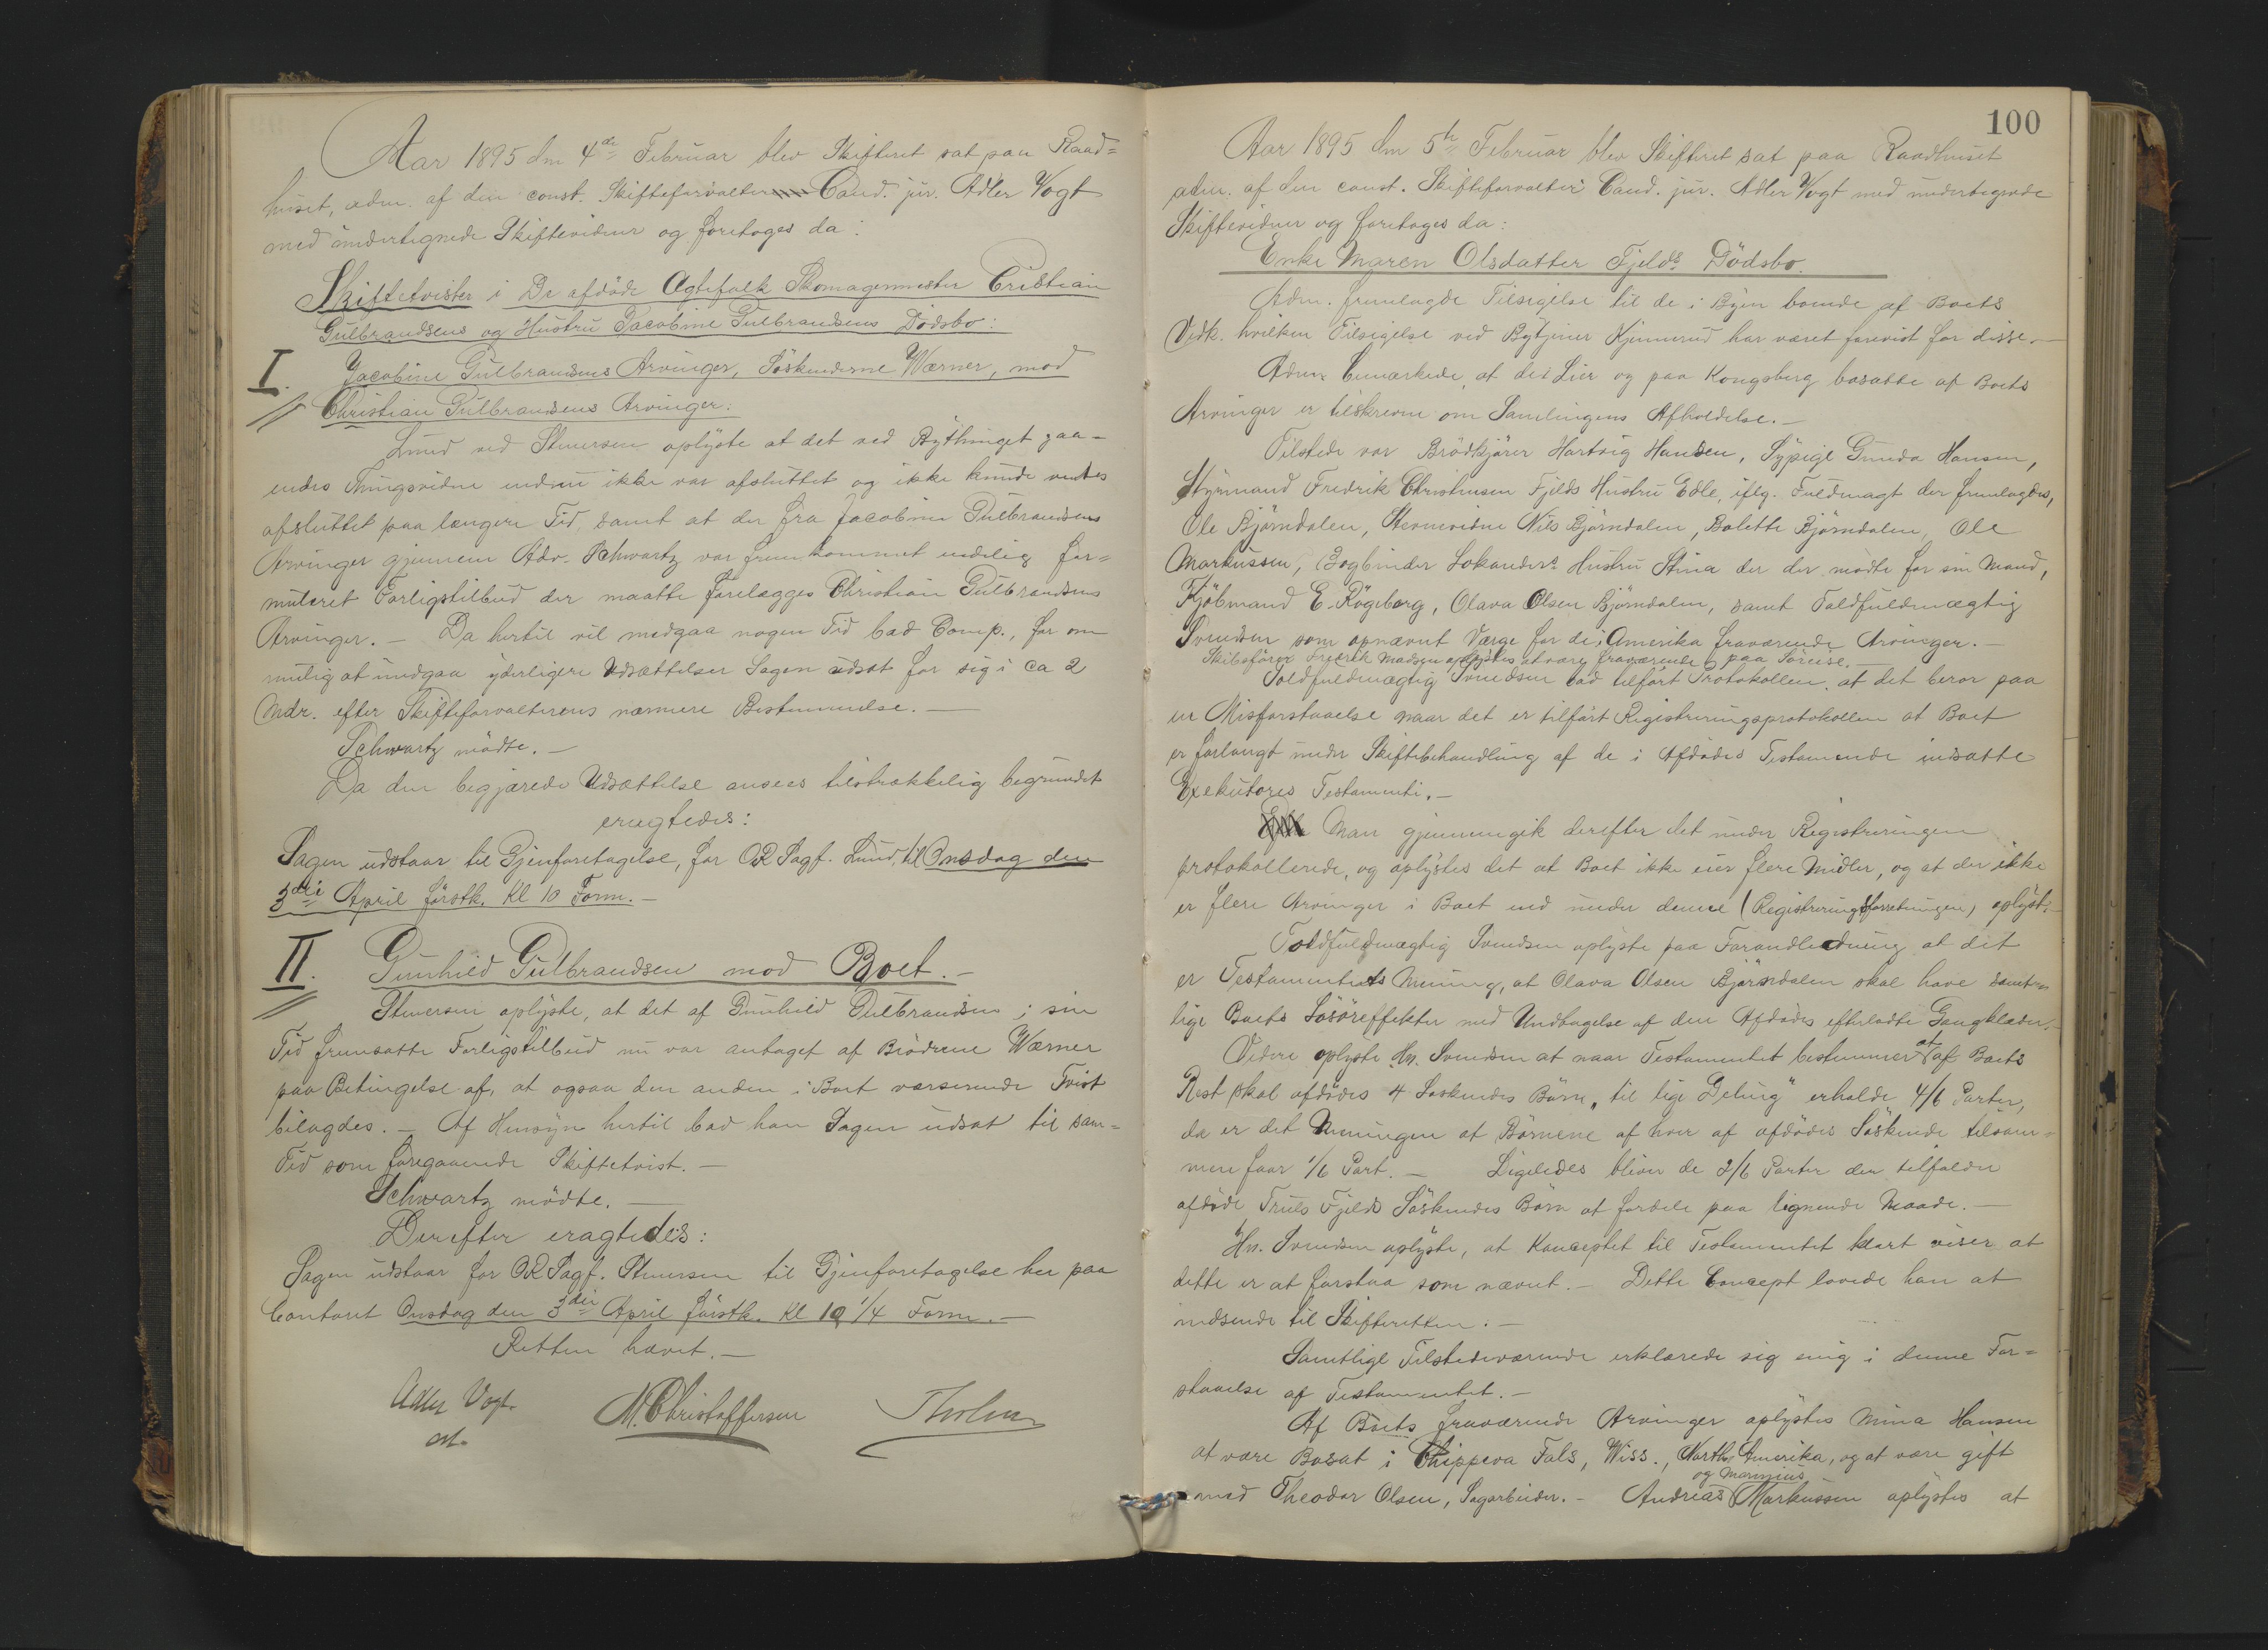 Aar 1895 den 4de Februar blev Skifteret sat paa Raad=
huset, adm. af den const. Skifteforvalter Cand. jur. Adler Vogt
med undertegnede Skiftevidner og foretoges da:
Skiftetvister i De afdöde Ægtefolk Skomagermester Cristian
Gulbrandsens og Hustru Jacobine Gulbrandsens Dödsbo:
I. Jacobine Gulbrandsens Arvinger, Söskenderne Wærner, mod
Christian Gulbrandsens Arvinger:
Lund ved Stenersen oplyste at det ved Bythinget gaa-
endes Thingsvidne endnu ikke var afsluttet og ikke kunde ventes
afsluttet paa længere Tid, samt at der fra Jacobine Gulbrandsens
Arvinger gjennem Adv. Schwartz var fremkommet endelig for=
muleret Forligstilbud der maatte forelægges Christian Gulbrandsens
Arvinger. – Da hertil vil medgaa nogen Tid bad Comp., for om
mulig at undgaa yderligere Udsættelser Sagen udsat for sig i ca 2
Mdr. efter Skifteforvalterens nærmere Bestemmelse. –
Schwartz mödte. –
Da den begjærede Udsættelse ansees tilstrækkelig begrundet
eragtedes:
Sagen udstaar til Gjenforetagelse, for OR Sagf. Lund, til Onsdag den
3die April förstk. Kl 10 Form. –
II. Gunhild Gulbrandsen mod Boet. –
Stenersen oplyste, at det af Gunhild Gulbrandsen i sin
Tid fremsatte Forligstilbud nu var antaget af Brödrene Wærner
paa Betingelse af, at ogsaa den anden i Boet værserende Tvist
bilagdes. – Af Hensyn hertil bad han Sagen udsat til sam=
Tid som foregaaende Skiftetvist. –
Schwartz mödte. –
Derefter eragtedes:
Sagen udstaar for OR Sagf. Stenersen til Gjenforetagelse her paa
Contoret Onsdag den 3die April förstk. Kl 10 1/4 Form. –
Retten hævet. –
Adler Vogt.
cst.
M. Christoffersen
100
Aar 1895 den 5te Februar blev Skifteret sat paa Raadhuset
adm. af den const. Skifteforvalter Cand. jur. Adler Vogt med undertegnede
Skiftevidner og foretoges da:
Enke Maren Olsdatter Fjelds Dödsbo.
Adm. fremlagde Tilsigelse til de i Byen boende af Boets
Vedk. hvilken Tilsigelse ved Bytjener Kjennerud har været forevist for disse. –
Adm. bemærkede, at de i Lier og paa Kongsberg bosatte af Boets
Arvinger er tilskrevne om Samlingens Afholdelse. –
Tilstede var Brödkjörer Hartvig Hansen, Sypige Gunda Hansen,
Styrmand Fredrik Christensen Fjelds Hustru Edle, iflg. Fuldmagt der fremlagdes,
Ole Björndalen, Stevnevidne Nils Björndalen, Bolette Björndalen, Ole
Markussen, Bogbinder Lokanders Hustru Stina der der mödte for sin Mand,
Kjöbmand E. Rögeberg, Olava Olsen Björndalen, samt Toldfuldmægtig
Svendsen som opnævnt Værge for de i Amerika fraværende Arvinger. –
Skibsförer Fredrik Madsen oplystes at være fraværende paa Söreise. –
Toldfuldmægtig Svendsen bad tilfört Protokollen, at det beror paa
en Misforstaaelse naar det er tilfört Registreringsprotokollen at Boet
er forlangt under Skiftebehandling af de i Afdödes Testamente indsatte
Exekutores Testamenti. –
Man gjennemgik derefter det under Registreringen
protokollerede, og oplystes det at Boet ikke eier flere Midler, og at der ikke
er flere Arvinger i Boet end under denne (Registreringsforretningen) oplyst. –
Toldfuldmægtig Svendsen oplyste paa Foranledning at det
er Testamentets Mening, at Olava Olsen Björndalen skal have samt=
lige Boets Lösöreffekter med Undtagelse af den Afdödes efterladte Gangklæder. –
Videre oplyste Hr. Svendsen at naar Testamentet bestemmer at af Boets
Rest skal afdödes 4 Söskendes Börn „til lige Deling" erholde 4/6 Parter,
da er det Meningen at Börnene af hver af afdödes Söskende tilsam=
men faar 1/6 Part. – Ligeledes bliver de 2/6 Parter der tilfalder
afdöde Truls Fjelds Söskendes Börn at fordele paa lignende Maade. –
Hr. Svendsen oplyste, at Konceptet til Testamentet klart viser at
dette er at forstaa som nævnt. – Dette Concept lovede han at
indsende til Skifteretten. –
Samtlige Tilstedeværende erklærede sig enig i denne For=
staaelse af Testamentet. –
Af Boets fraværende Arvinger oplystes Mina Hansen
at være Bosat i Chippeva Fals, Wiss., North Amerika, og at være gift
med Theodor Olsen, Sagarbeider. – Andreas og Marinius Markussen oplystes at